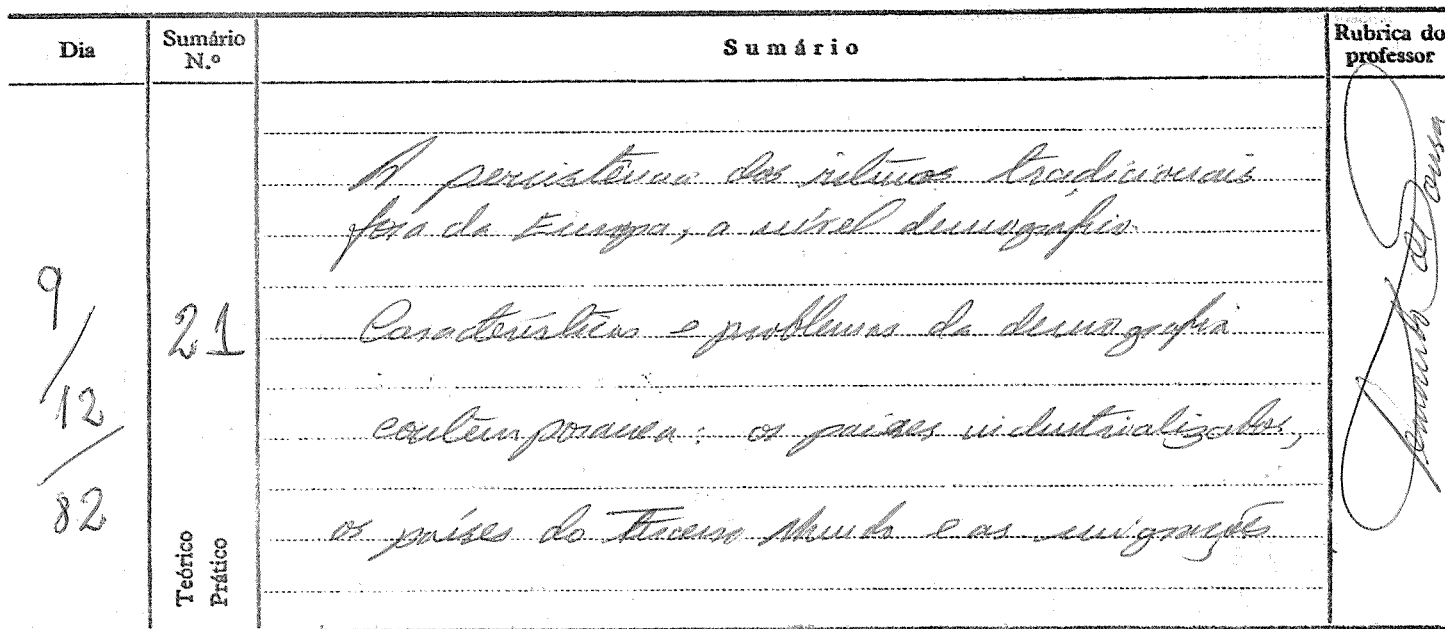 Dia
Sumário N.º
Sumário
Rubrica do professor
A persistência dos ritmos tradicionais
fora da Europa, a nível demográfico.
9/12/82
21
Características e problemas da demografia
contemporanea: os países industrializados,
os países do Terceiro Mundo e as migrações
Teórico
Prático